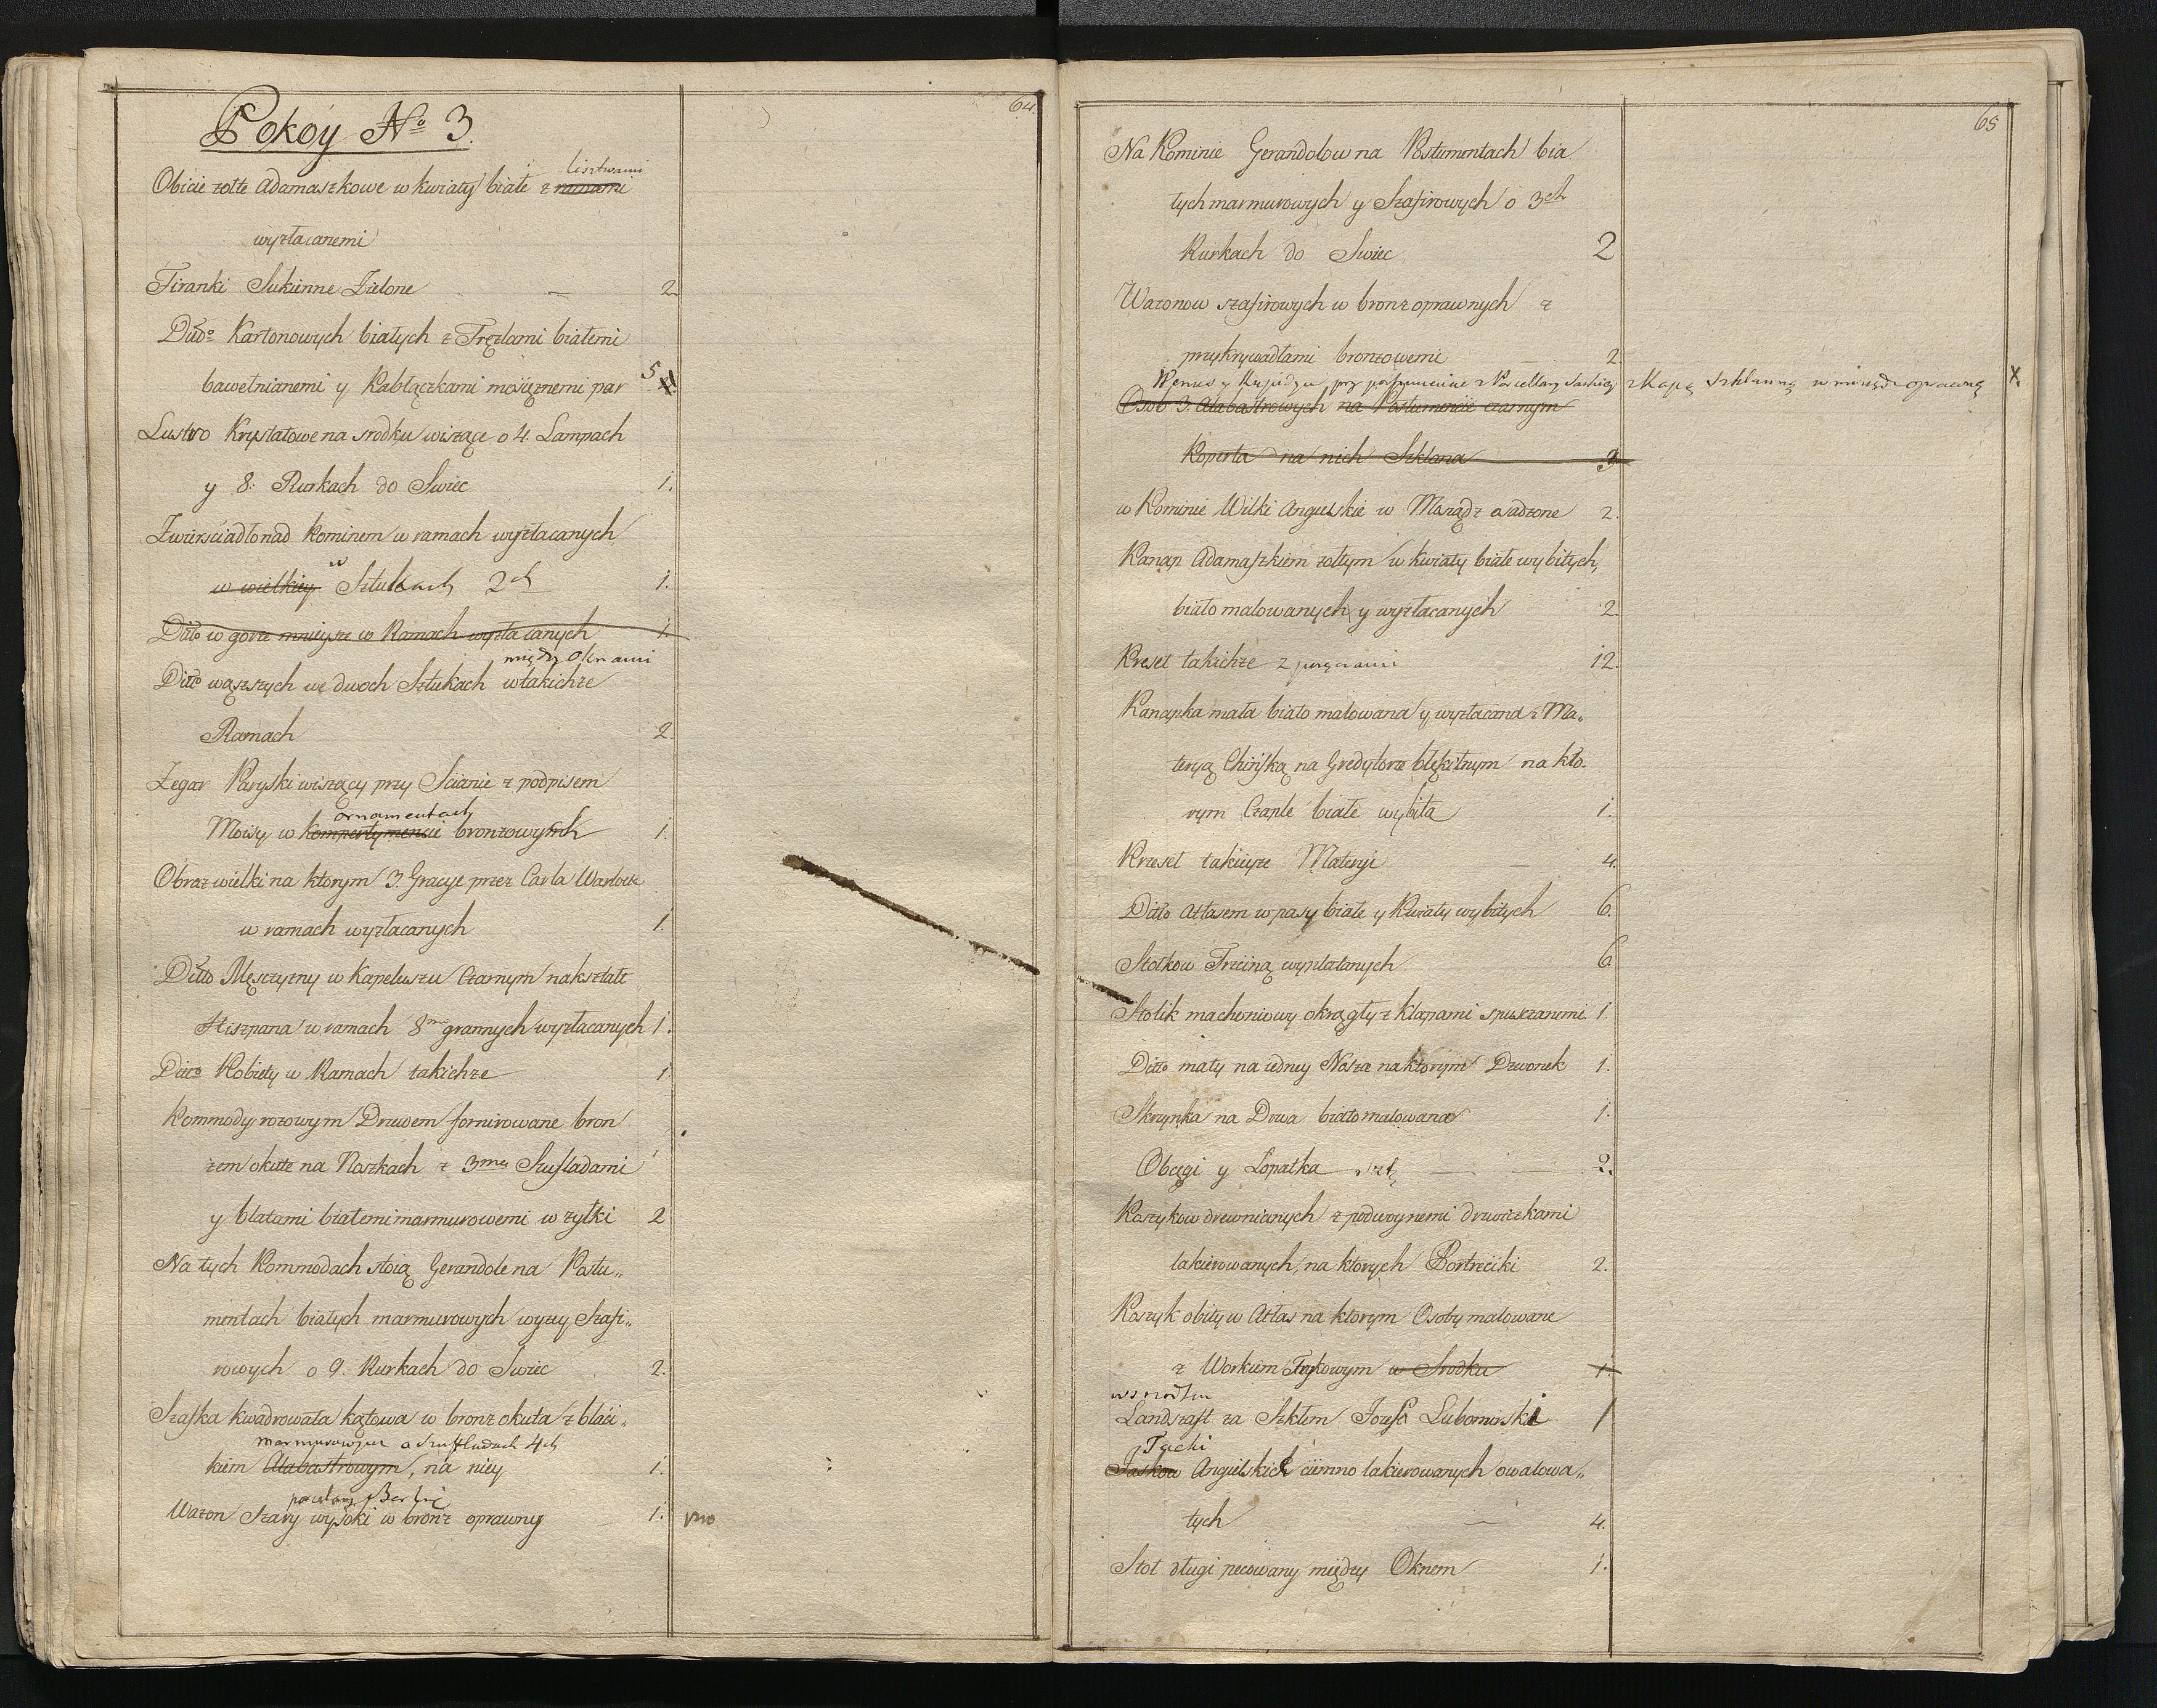 64.
Pokoy No 3.
listwami
Obicie zołte adamaszkowe w kwiaty białe z ramami
wyzłacanemi
Firanki Sukienne Zielone — 2
Ditto Kartonowych białych z Fręzlami białemi
bawełnianemi y Kabłączkami mosięznemi par 5
Lustro Krysztatowe na srodku wiszące o 4. Lampach
y 8. Rurkach do Swiec 1.
Zwierściadło nad Kominem w ramach wyzłacanych
w
w wielkiey Sztukach 2ch 1.
Ditto w gorze mnieysze w Ramach wyzłacanych 1.
między Oknami
Ditto węzszych we dwoch Sztukach w takichze
Ramach 2.
Zegar Paryski wiszący przy Scianie z podpisem
ornamentach
Moisy w kompertymencie bronzowych 1.
Obraz wielki na ktorym 3. Gracye przez Carla
w ramach wyzłacanych 1.
Ditto Męszczyzny w Kapeluszu Czarnym nakształt
Hiszpana w ramach 8mio grannych wyzłacanych 1.
Ditto Kobiety w Ramach takichze 1.
Kommody rozowym Drzewem fornirowane bron
zem okute na Nozkach z 3ma Szufladami
y blatami białemi marmurowemi w zyłki 2
Na tych Kommodach stoią Gerandole na Postu„
mentach białych marmurowych wyzey Szafi„
rowych o 9. Rurkach do Swiec 2.
Szafka kwadrowata kątowa w bronz okuta z blaci„
marmurowym o szufladach 4ch
kiem Alabastrowym, na niey 1.
Wazon Szary wysoki w bronz oprawny 1.
65
Na Kominie Gerandolow na Postumentach bia
łych marmurowych y Szafirowych o 3ch
Rurkach do Swiec 2
Wazonow szafirowych w bronz oprawnych z
przykrywadłami bronzowemi — 2.
Wenus y Kupidyn przy postumencie z Porcellany Saskiey z Kapą szklanną w mosiądz oprawną X
Osob 3. Alabastrowych na Postumencie czarnym
Koperta na nich Szklana 3
w Kominie Wilki Angielskie w Mosądz osadzone 2.
Kanap Adamaszkiem zołtym w kwiaty białe wybitych,
biało malowanych y wyzłacanych 2.
Kreseł takichze z poręczami 12.
Kanapka mała biało malowana y wyzłacana z Ma„
teryą Chińską na Gredytorze błękitnym na kto.
rym Czaple białe wybita 1.
Krzeseł takieyze Materyi 4.
Ditto Atłasem w pasy białe y Kwiaty wybitych 6.
Stołkow Trzciną wyplatanych 6
Stolik machoniowy okrągły z klapami spuszczanemi 1.
Ditto mały na iedney Nozce na ktorym Dzwonek 1.
Skrzynka na Drwa biało malowana 1.
Obcęgi y Lopatka — 2.
Koszykow drewnianych z podwoynemi drzwiczkami
lakierowanych, na ktorych Portreciki 2.
Koszyk obity w Atłas na ktorym Osoby malowane
z Workiem w Srodku 1.
w srodku
Landszaft za Szkłem Jozefa Lubomirski 1
Tacki
Taskow Angielskich ciemno lakierowanych owalowa„
tych — 4.
Stoł długi pecowany między Oknem 1.